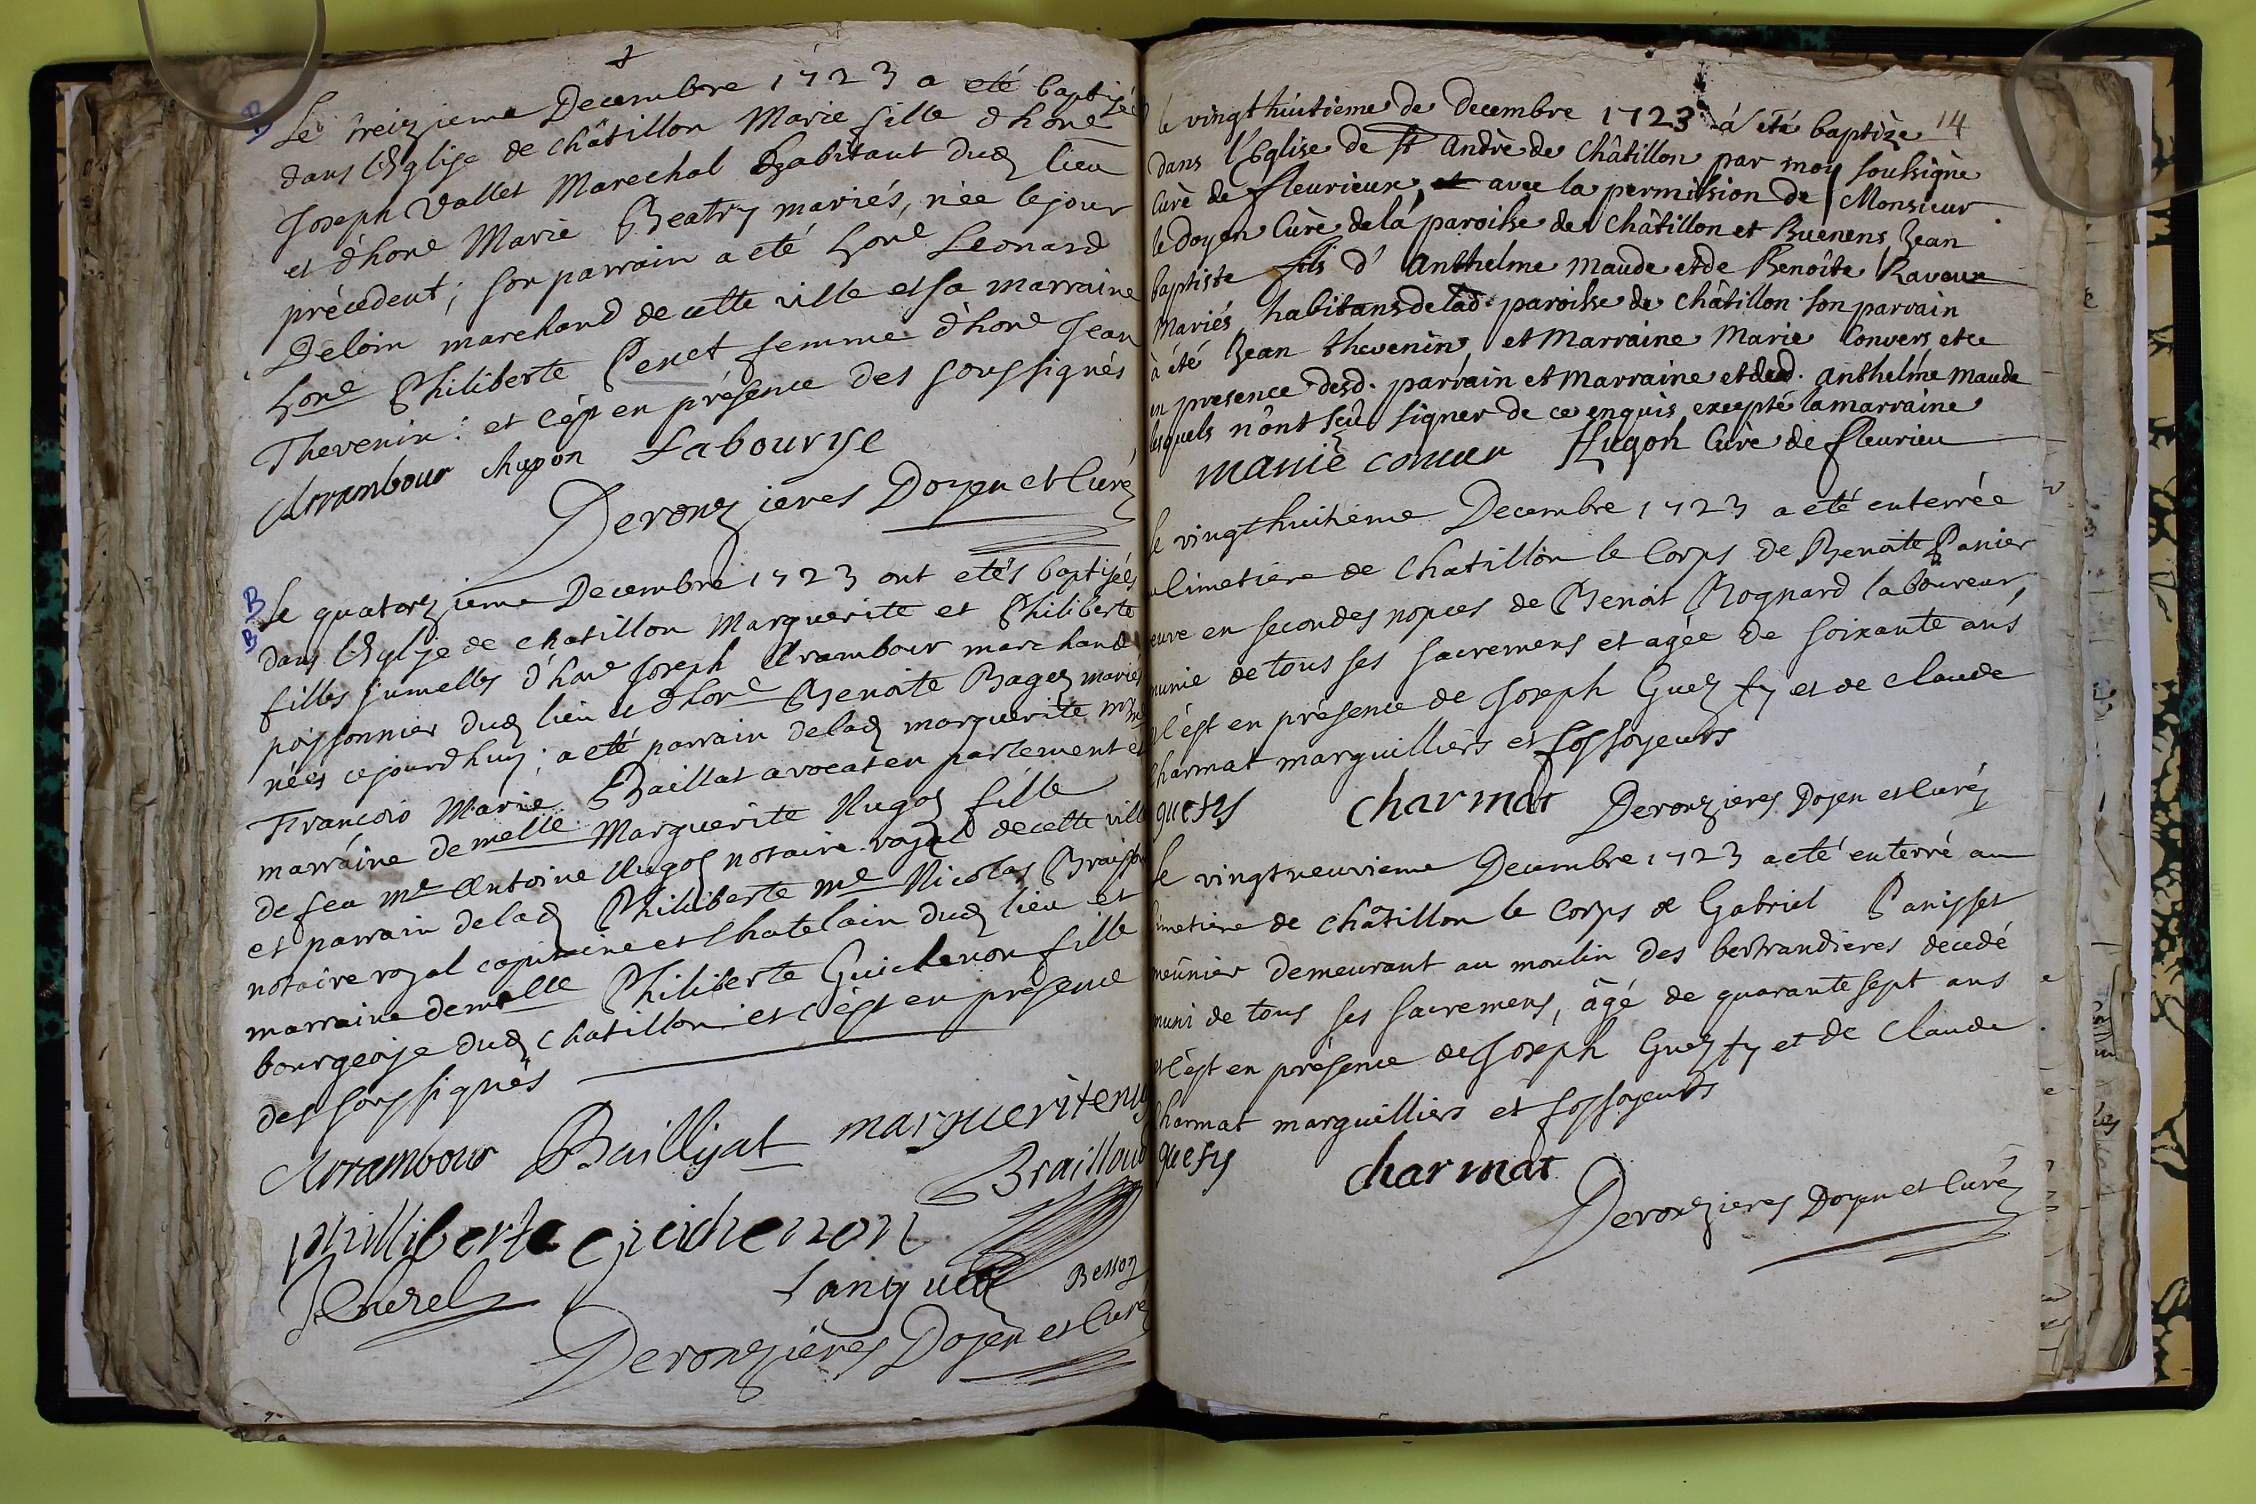 B Le treizieme Decembre 1723 a eté baptisée
dans l'Eglise de châtillon Marie fille d'hone
Joseph Vallet Marechal habitant dud lieu
et d'hone Marie Beatry mariés, née le jour
précedent; son parrain a eté hone Leonard
Deloin marchand de cette ville et sa marraine
hone Philiberte Penet femme d'hone Jean
Thevenin: et c'est en présence des soussignés
Arrambour chapon Labourye
Deronzieres Doyen et Curé
B Le quatorzieme Decembre 1723 ont etés baptisées
B dans l'Eglise de chatillon Marguerite et Philiberte
filles jumelles d'hone Joseph Arrambour marchand
poissonnier dud lieu et d'hone Benoite Bagez mariés
nées cejourdhuy; a eté parrain delad marguerite
François Marie Baillat avocat en parlement et
marraine demelle Marguerite Nugoz fille
de feu me Antoine Nugoz notaire royal de cette ville
et parrain delad Philiberte me Nicolas
notaire royal capitaine et Chatelain dud lieu et
marraine demelle Philiberte Guichenon fille
bourgeoise dud chatillon et c'est en présence
des soussignés
Arrambour Baillyat margueritenu
Brailloud
philliberte guichenon
Languet Besson
Deronzieres Doyen et Curé
14
le vingt huitieme de decembre 1723 à été baptize
dans l'Eglise de st Andrè de Châtillon par moy soussignè
Curè de fleurieux, et avec la permission de Monsieur
le doyen Curè de la paroisse de Châtillon et Buenens Jean
baptiste fils d'Anthelme maude et de Benoîte Ravoux
Mariés habitans delad. paroisse de Châtillon. son parrain
à été Jean thevenin, et Marraine Marie Convers et ce
en presence desd. parrain et Marraine et dud. anthelme maude
lesquels n'ont sçu signer de ce enquis excepté la marraine
Hugon Curè de fleurieu
le vingthuitième Decembre 1723 a eté enterrée
au Cimetiere de Chatillon le Corps de Benoite Panier
veuve en secondes nopces de Benoit Rognard laboureur,
munie de tous ses sacremens et agée de soixante ans
et c'est en présence de Joseph Guezty et de Claude
Charmat marguilliers et fossoyeurs
guesty charmat Deronzieres Doyen et Curé
le vingtneuvieme Decembre 1723 a eté enterré au
Cimetiere de Chatillon le Corps de Gabriel Panisset
meûnier demeurant au moulin des bertrandieres decedé
muni de tous ses sacremens, âgé de quarante sept ans
et c'est en présence de Joseph Guezty et de Claude
Charmat marguilliers et fossoyeurs
guesty charmat
Deronzieres Doyen et Curé